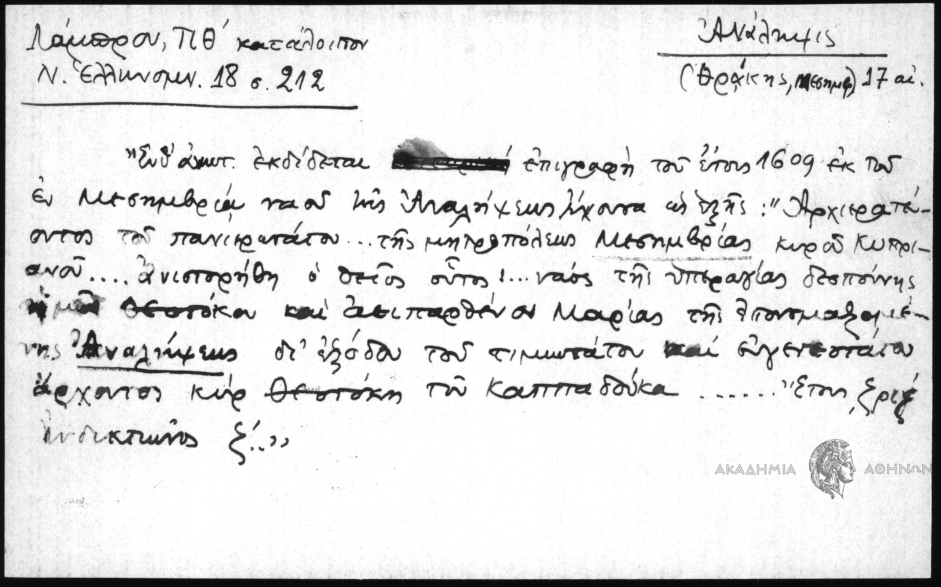 Λάμπρου, ΠΘ΄ κατάλοιπον
Ν. Ἑλληνομν. 18 σ. 212
Ἀνάληψις
(Θράκης, Μεσημβρ) 17 αἰ.
"Ἐνθ' ἀνωτ. ἐκδίδεται ἐπιγραφὴ τοῦ ἔτους 1609 ἐκ τοῦ
ἐν Μεσημβρίᾳ ναοῦ τῆς Ἀναλήψεως λέγουσα ὡς ἑξῆς: "Ἀρχιερατεύ-
οντος τοῦ πανιερωτάτου ... τῆς μητροπόλεως Μεσημβρίας κυροῦ Κυπρι-
ανοῦ .... ἀνιστορήθη ὁ θεῖος οὗτος ... ναὸς τῆς ὑπεραγίας δεσποίνης
ἡμῶν Θεοτόκου καὶ ἀειπαρθένου Μαρίας τῆς ἐπονομαζομέ-
νης Ἀναλήψεως δι' ἐξόδου τοῦ τιμιωτάτου καὶ εὐγενεστάτου
ἄρχοντος κὺρ Θεοτόκη τοῦ Καππαδούκα ...... Ἔτους ͵ζριζ
ἰνδικτιῶνος ζ..»
ΑΚΑΔΗΜΙΑ ΑΘΗΝΩΝ